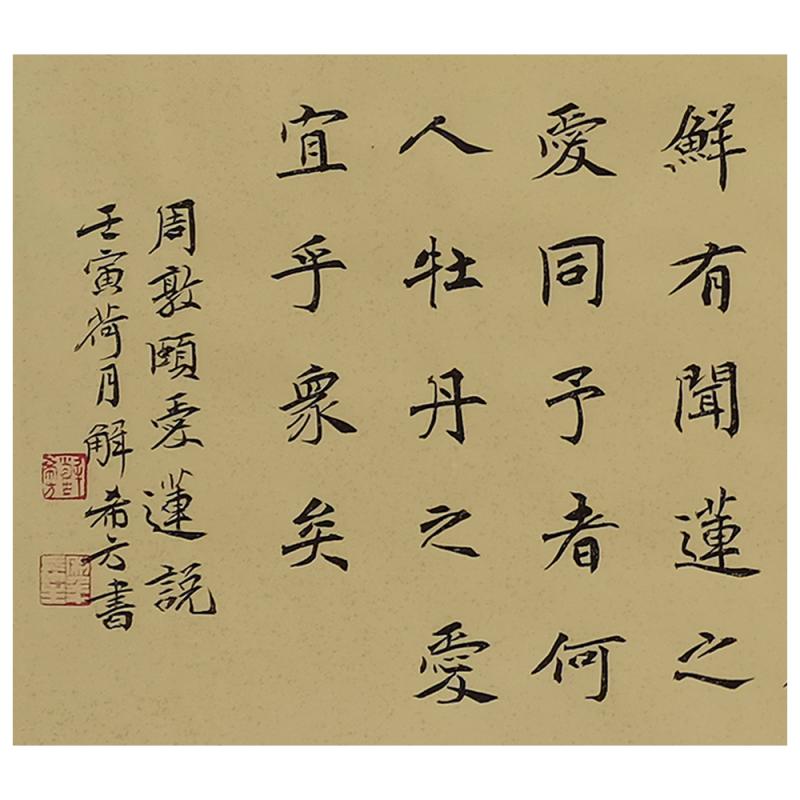 鮮有聞蓮之
愛同予者何
人牡丹之愛
宜乎衆矣
周敦頤愛蓮說
壬寅荷月解希方書